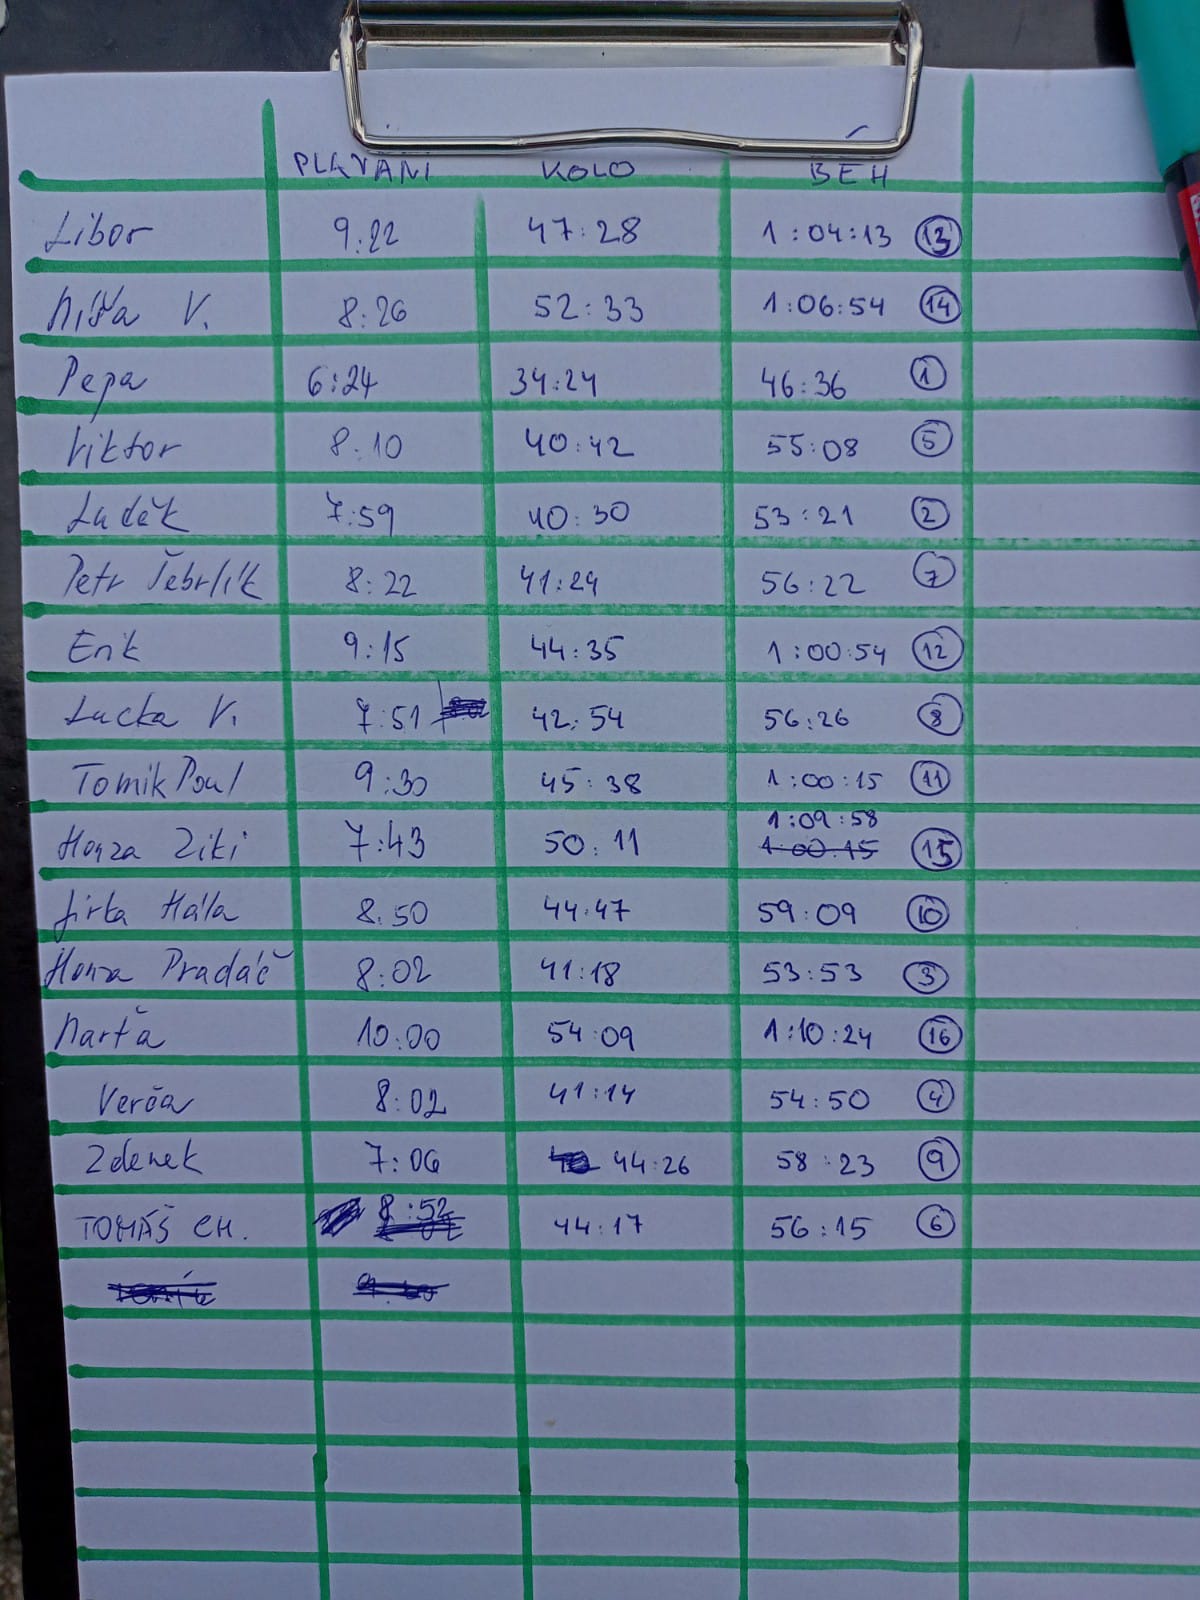 PLAVÁNÍ KOLO BĚH
Libor 9:22 47:28 1:04:13 13
Míša V. 8:26 52:33 1:06:54 14
Pepa 6:24 34:24 46:36 1
Viktor 8:10 40:42 55:08 5
Luděk 7:59 40:30 53:21 2
Petr Šebrlík 8:22 41:29 56:22 7
Erik 9:15 44:35 1:00:54 12
Lucka V. 7:51 42:54 56:26 8
Tomik Poul 9:30 45:38 1:00:15 11
1:09:58
Honza Ziki 7:43 50:11 1:00:15 15
Jirka Hála 8:50 44:47 59:09 10
Honza Pradáč 8:02 41:18 53:53 3
Marťa 10:00 54:09 1:10:24 16
Verča 8:02 41:14 54:50 4
Zdenek 7:06 44:26 58:23 9
TOMÁŠ CH. 8:52 44:17 56:15 6